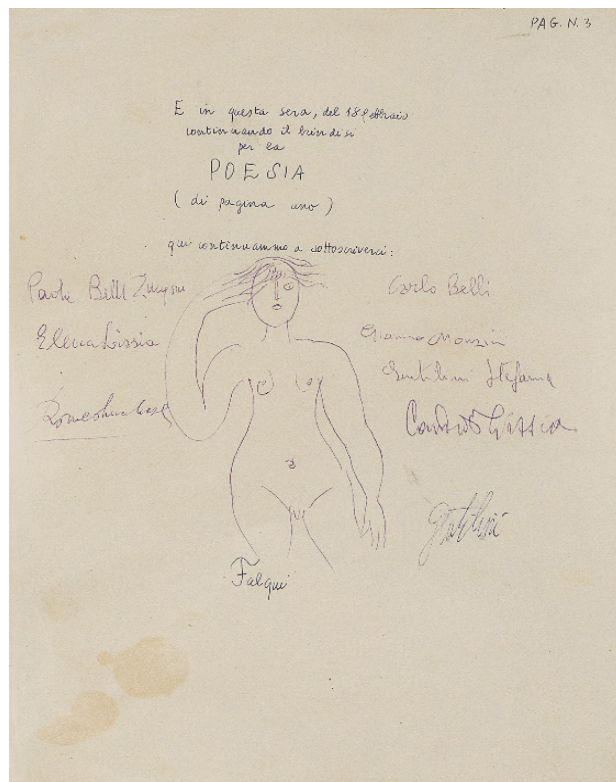 PAG. N. 3
E in questa sera, del 18 febbraio
continuando il brindisi
per la
POESIA
(di pagina uno)
qui continuammo a sottoscriverci:
Paola Belli
Carlo Belli
Elena Lissia
Gianna Manzini
Gentilini Stefania
Lissia
Falqui